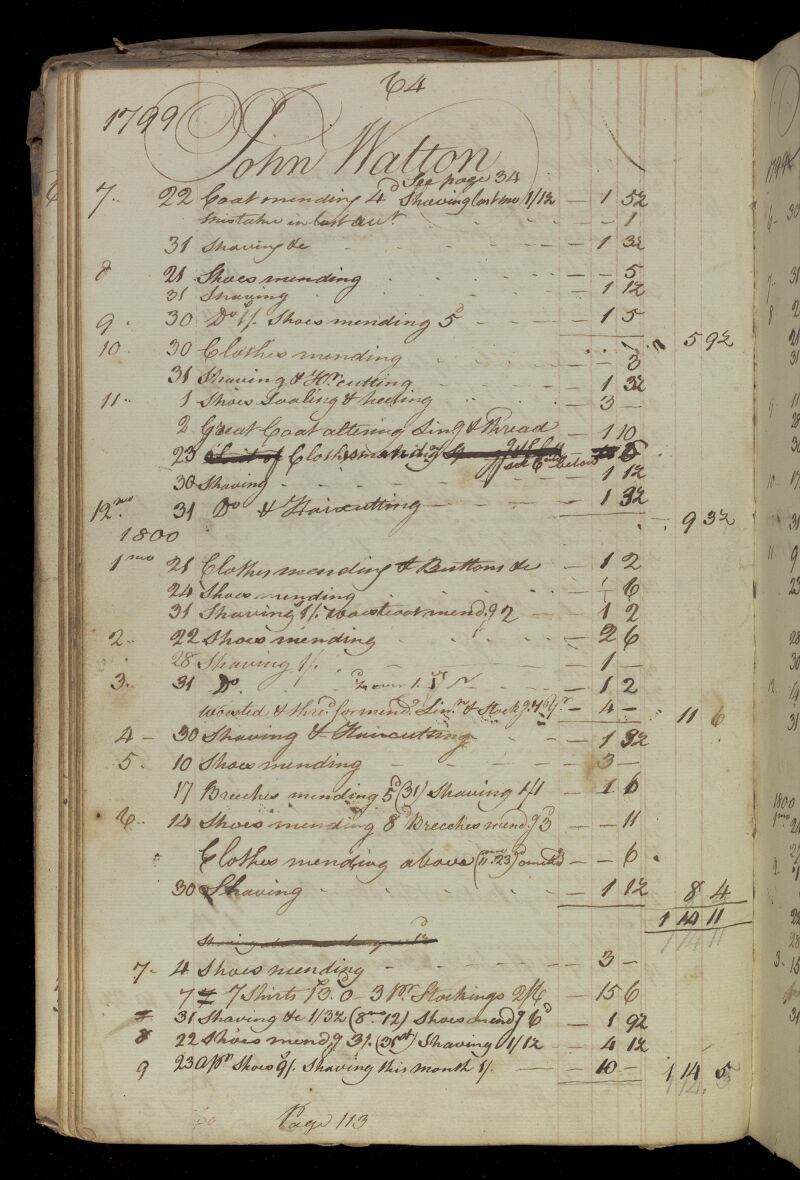 64
1799 John Walton
See page 34
7 .. 22 Coat mending 4d Shaving last mo 1/1½ — 1 5½
mistake in last acct — — 1
31 Shaving &c — 1 3½
8 21 Shoes mending — — 5
31 Shaving — 1 1½
9 . 30 Do 1/. Shoes mending 5d — 1 5
5 9½
10 . 30 Clothes mending — — 3
31 Shaving & Hr cutting — 1 3½
11 .. 1 Shoes Soaling & heeling — 3 —
2 Great Coat altering Ling & Thread — 1 10
23 Clothes mending
see 6mo below
30 Shaving — 1 1½
12mo 31 Do & Haircutting — 1 3½
— 9 3½
1800
1mo 21 Clothes mending & Buttons &c — 1 2
24 Shoes mending — 6
31 Shaving 1/. waistcoat mendg 2 — 1 2
2 .. 22 Shoes mending — 2 6
28 Shaving 1/. — 1 —
3 . 31 Do — 1 2
worsted & thred for mendg — 4 —
11 6
4 – 30 Shaving & Haircutting — 1 3½
5 . 10 Shoes mending — 3 —
17 Breeches mending 5d (31) Shaving 1/1 — 1 6
6 .. 14 Shoes mending 8d Breeches mendg 3d — — 11
Clothes mending above (11mo 23rd) omitted — — 6
30 Shaving — 1 1½
8 4
1 14 11
1 14 11
7 – 4 Shoes mending — 3 —
7 7 Shirts 13.0 – 3 Pr Stockings 2/6 — 15 6
31 Shaving &c 1/3½ (8mo 12) Shoes mendg 6d — 1 9½
8 22 Shoes mendg 3/. (31st) Shaving 1/1½ — 4 1½
9 23 a Pr Shoes 9/. Shaving this month 1/. — 10 —
1 14 5
1 14. 5
Page 113